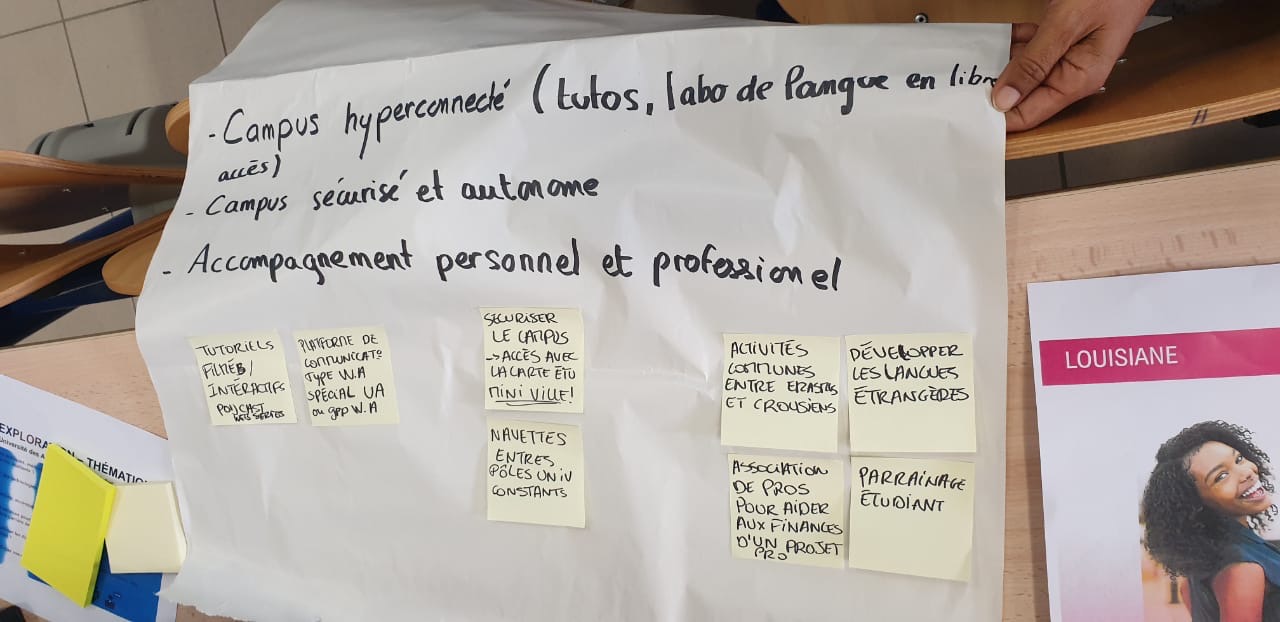 - Campus hyperconnecté (tutos, labo de langue en libre
accès)
- Campus sécurisé et autonome
- Accompagnement personnel et professionel
TUTORIELS
FILMÉS/
INTÉRACTIFS
PODCAST
PLATFORME DE
COMMUNICATO
TYPE W.A
SPÉCIAL UA
ou gpp W.A
SÉCURISER
LE CAMPUS
→ ACCÈS AVEC
LA CARTE ÉTU
MINI VILLE!
NAVETTES
ENTRES
PÔLES UNIV
CONSTANTS
ACTIVITÉS
COMMUNES
ENTRE ERASMUS
ET CROUSIENS
DÉVELOPPER
LES LANGUES
ÉTRANGÈRES
ASSOCIATION
DE PROS
POUR AIDER
AUX FINANCES
D'UN PROJET
PRO
PARRAINAGE
ÉTUDIANT
LOUISIANE
EXPLORA
THÉMATIQ
Université des A